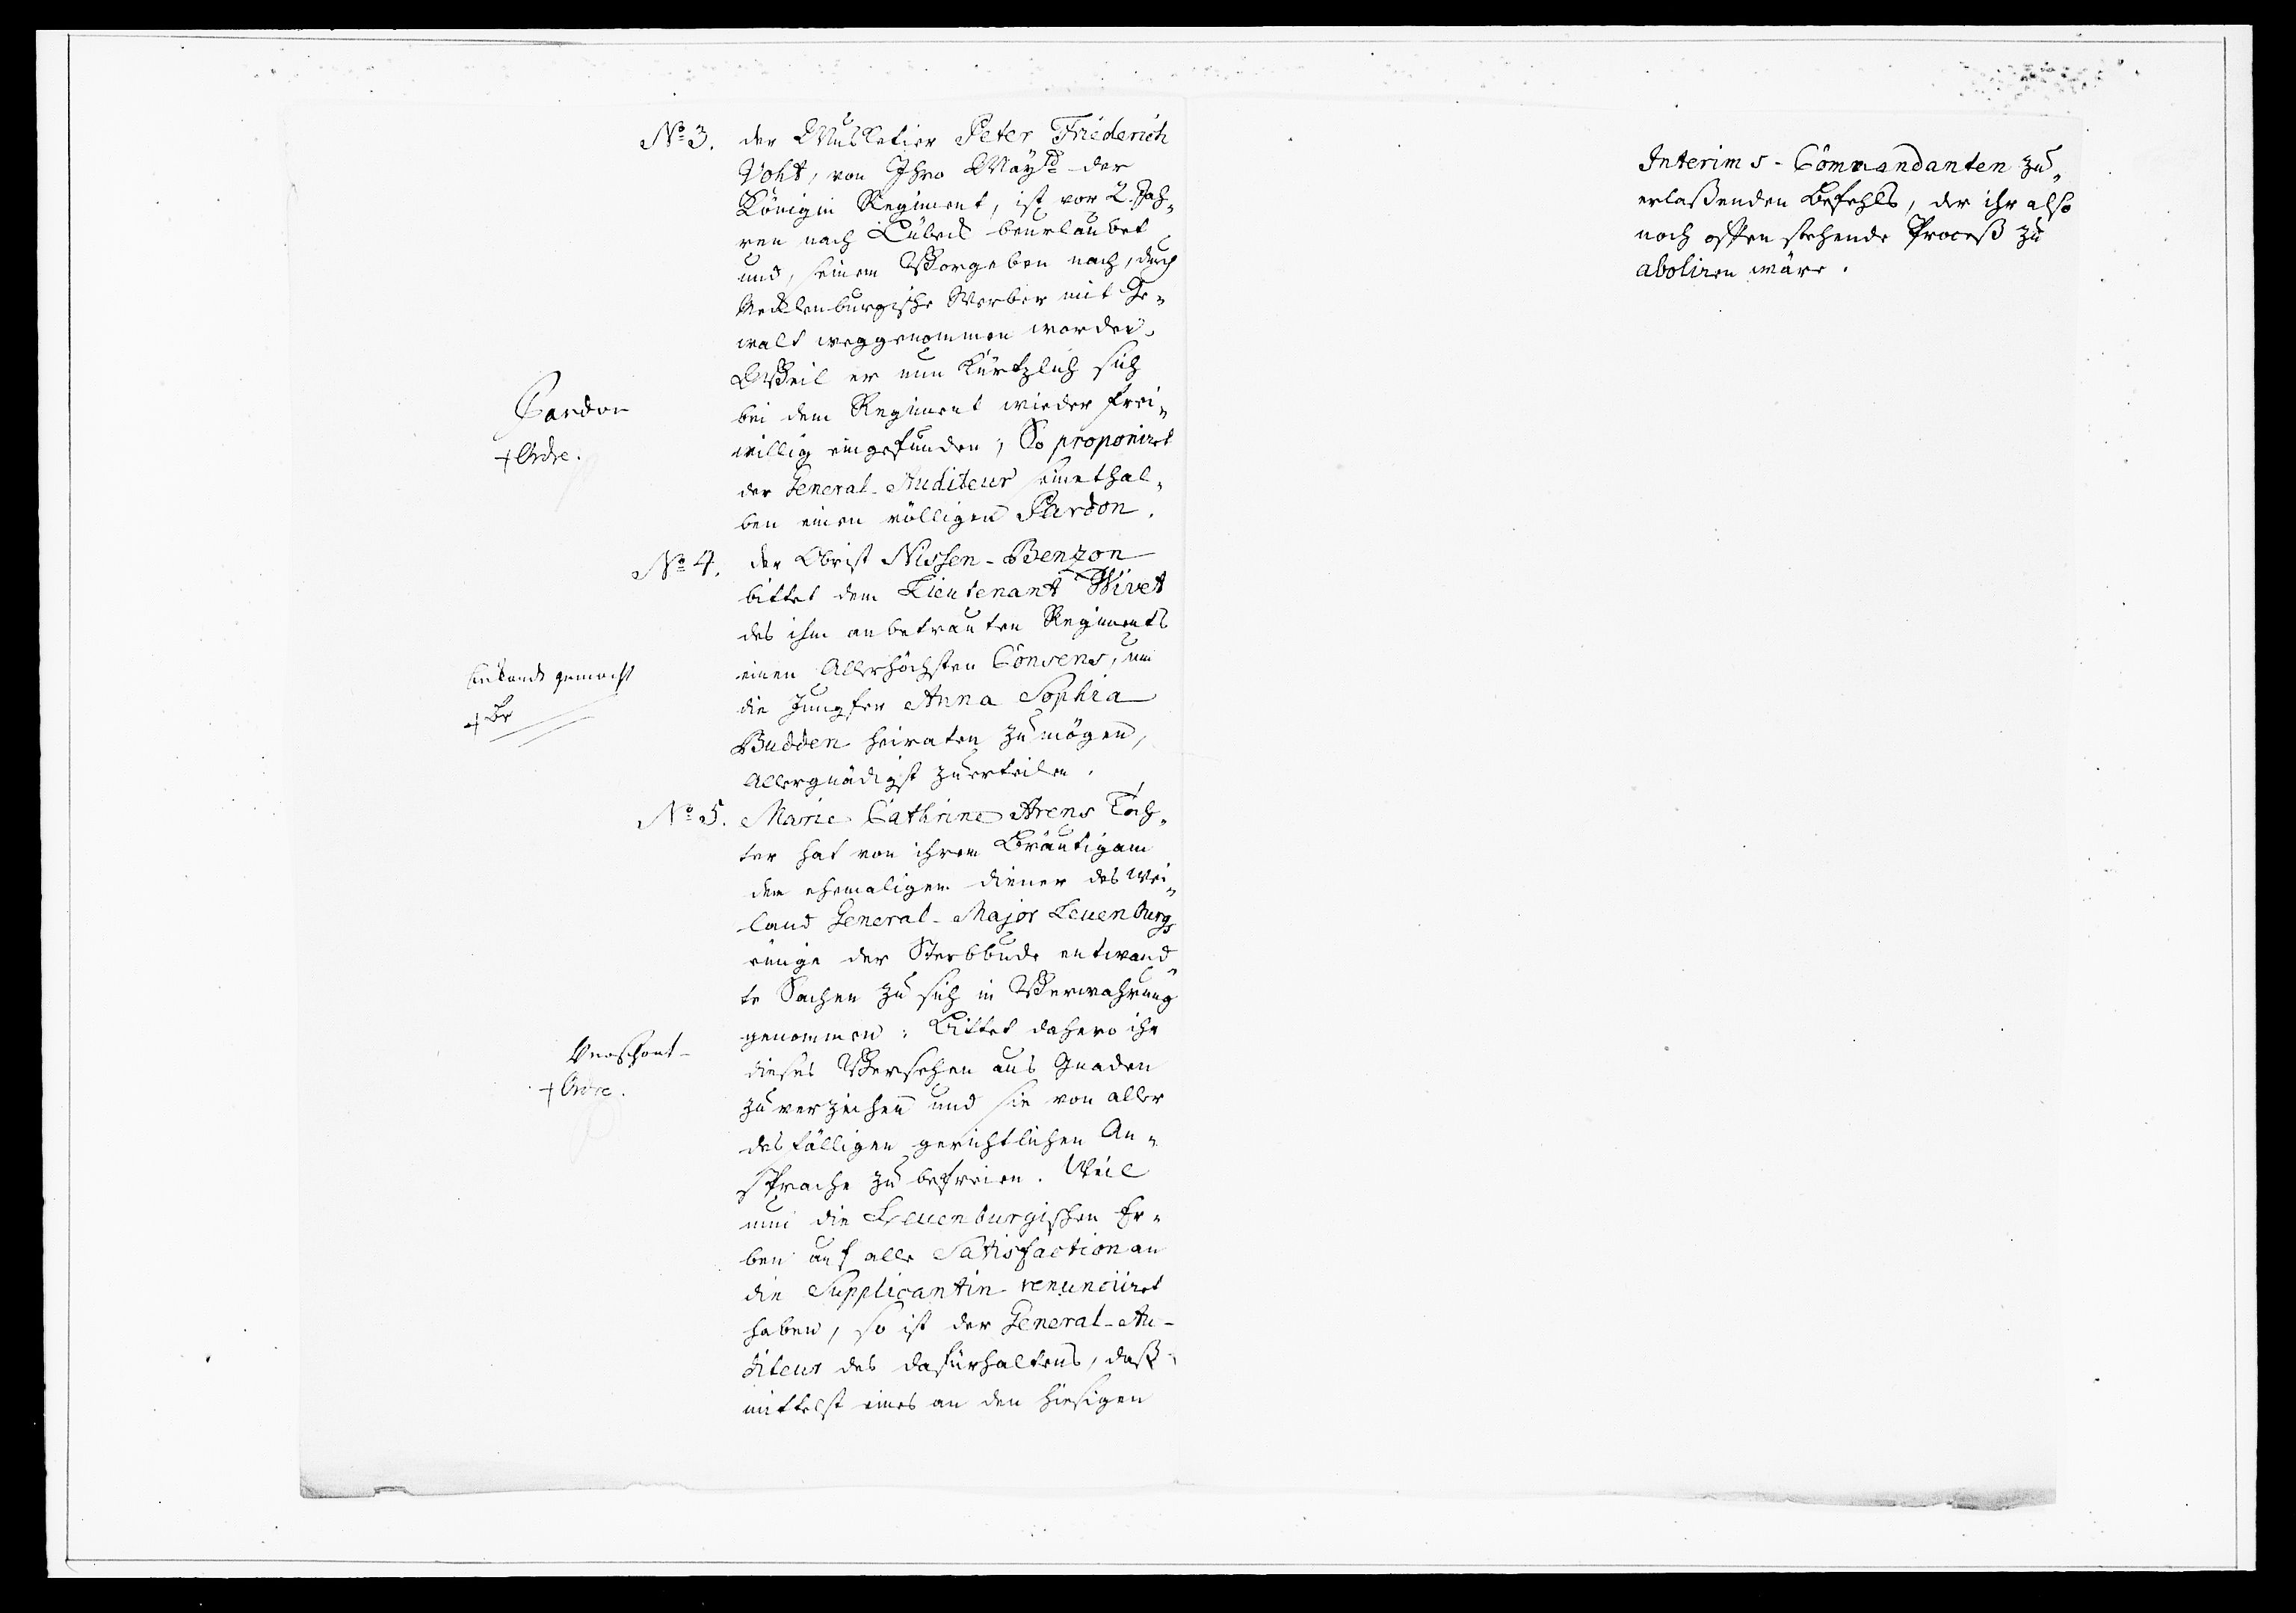 No 3. der Musketier Peter Friederich
Voht, von Ihro Mayt der
Königin Regiment, ist vor 2. Jah-
ren nach Lübeck beurlaubet
und, seinem Vorgeben nach, durch
Mecklenburgische Werber mit Ge-
walt weggenommen worden.
Weil er nun kürtzlich sich
bei dem Regiment wieder frei-
willig eingefunden; So proponiret
der General-Auditeur seinethal-
ben einen völligen Pardon.
Pardon
+ Ordre.
No 4. der Obrist Nissen-Benzon
bittet dem Lieutenant Wivet
des ihm anbetrauten Regiments
einen Allerhöchsten Consens, um
die Jungfer Anna Sophia
Budden heiraten zu mögen,
Allergnädigst zu erteilen.
bekandt gemacht
+ Br
No 5. Marie Cathrine Arens Toch-
ter hat von ihrem Bräutigam
dem ehemaligen diener des wei-
land General-Major Leuenburg
einige der Sterbbude entwand-
te Sachen zu sich in Verwahrung
genommen: Bittet dahero ihr
dieses Versehen aus Gnaden
zu verzeihen und sie von aller
desfälligen gerichtlichen An-
sprache zu befreien. Weil
nun die Leuenburgischen Er-
ben auf alle Satisfaction an
die Supplicantin renunciiret
haben, so ist der General-Au-
diteur des dafürhaltens, daß
mittelst eines an den hiesigen
Verschont
+ Ordre.
Interims-Commandanten zu
erlaßenden Befehls, der ihr also
noch offen stehende Proceß zu
aboliren wäre.